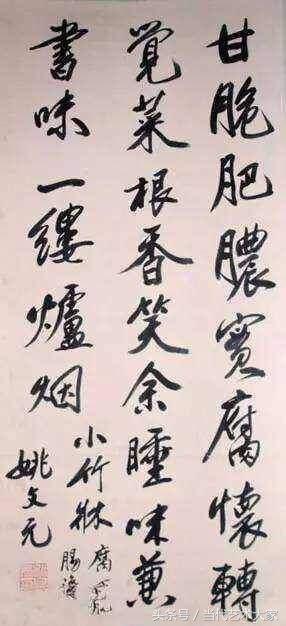 甘脆肥膿實腐懷轉
覺菜根香笑余睡味兼
書味一縷爐烟
小竹牀
腐
腸
姚文元
头条号 / 当代艺术大家